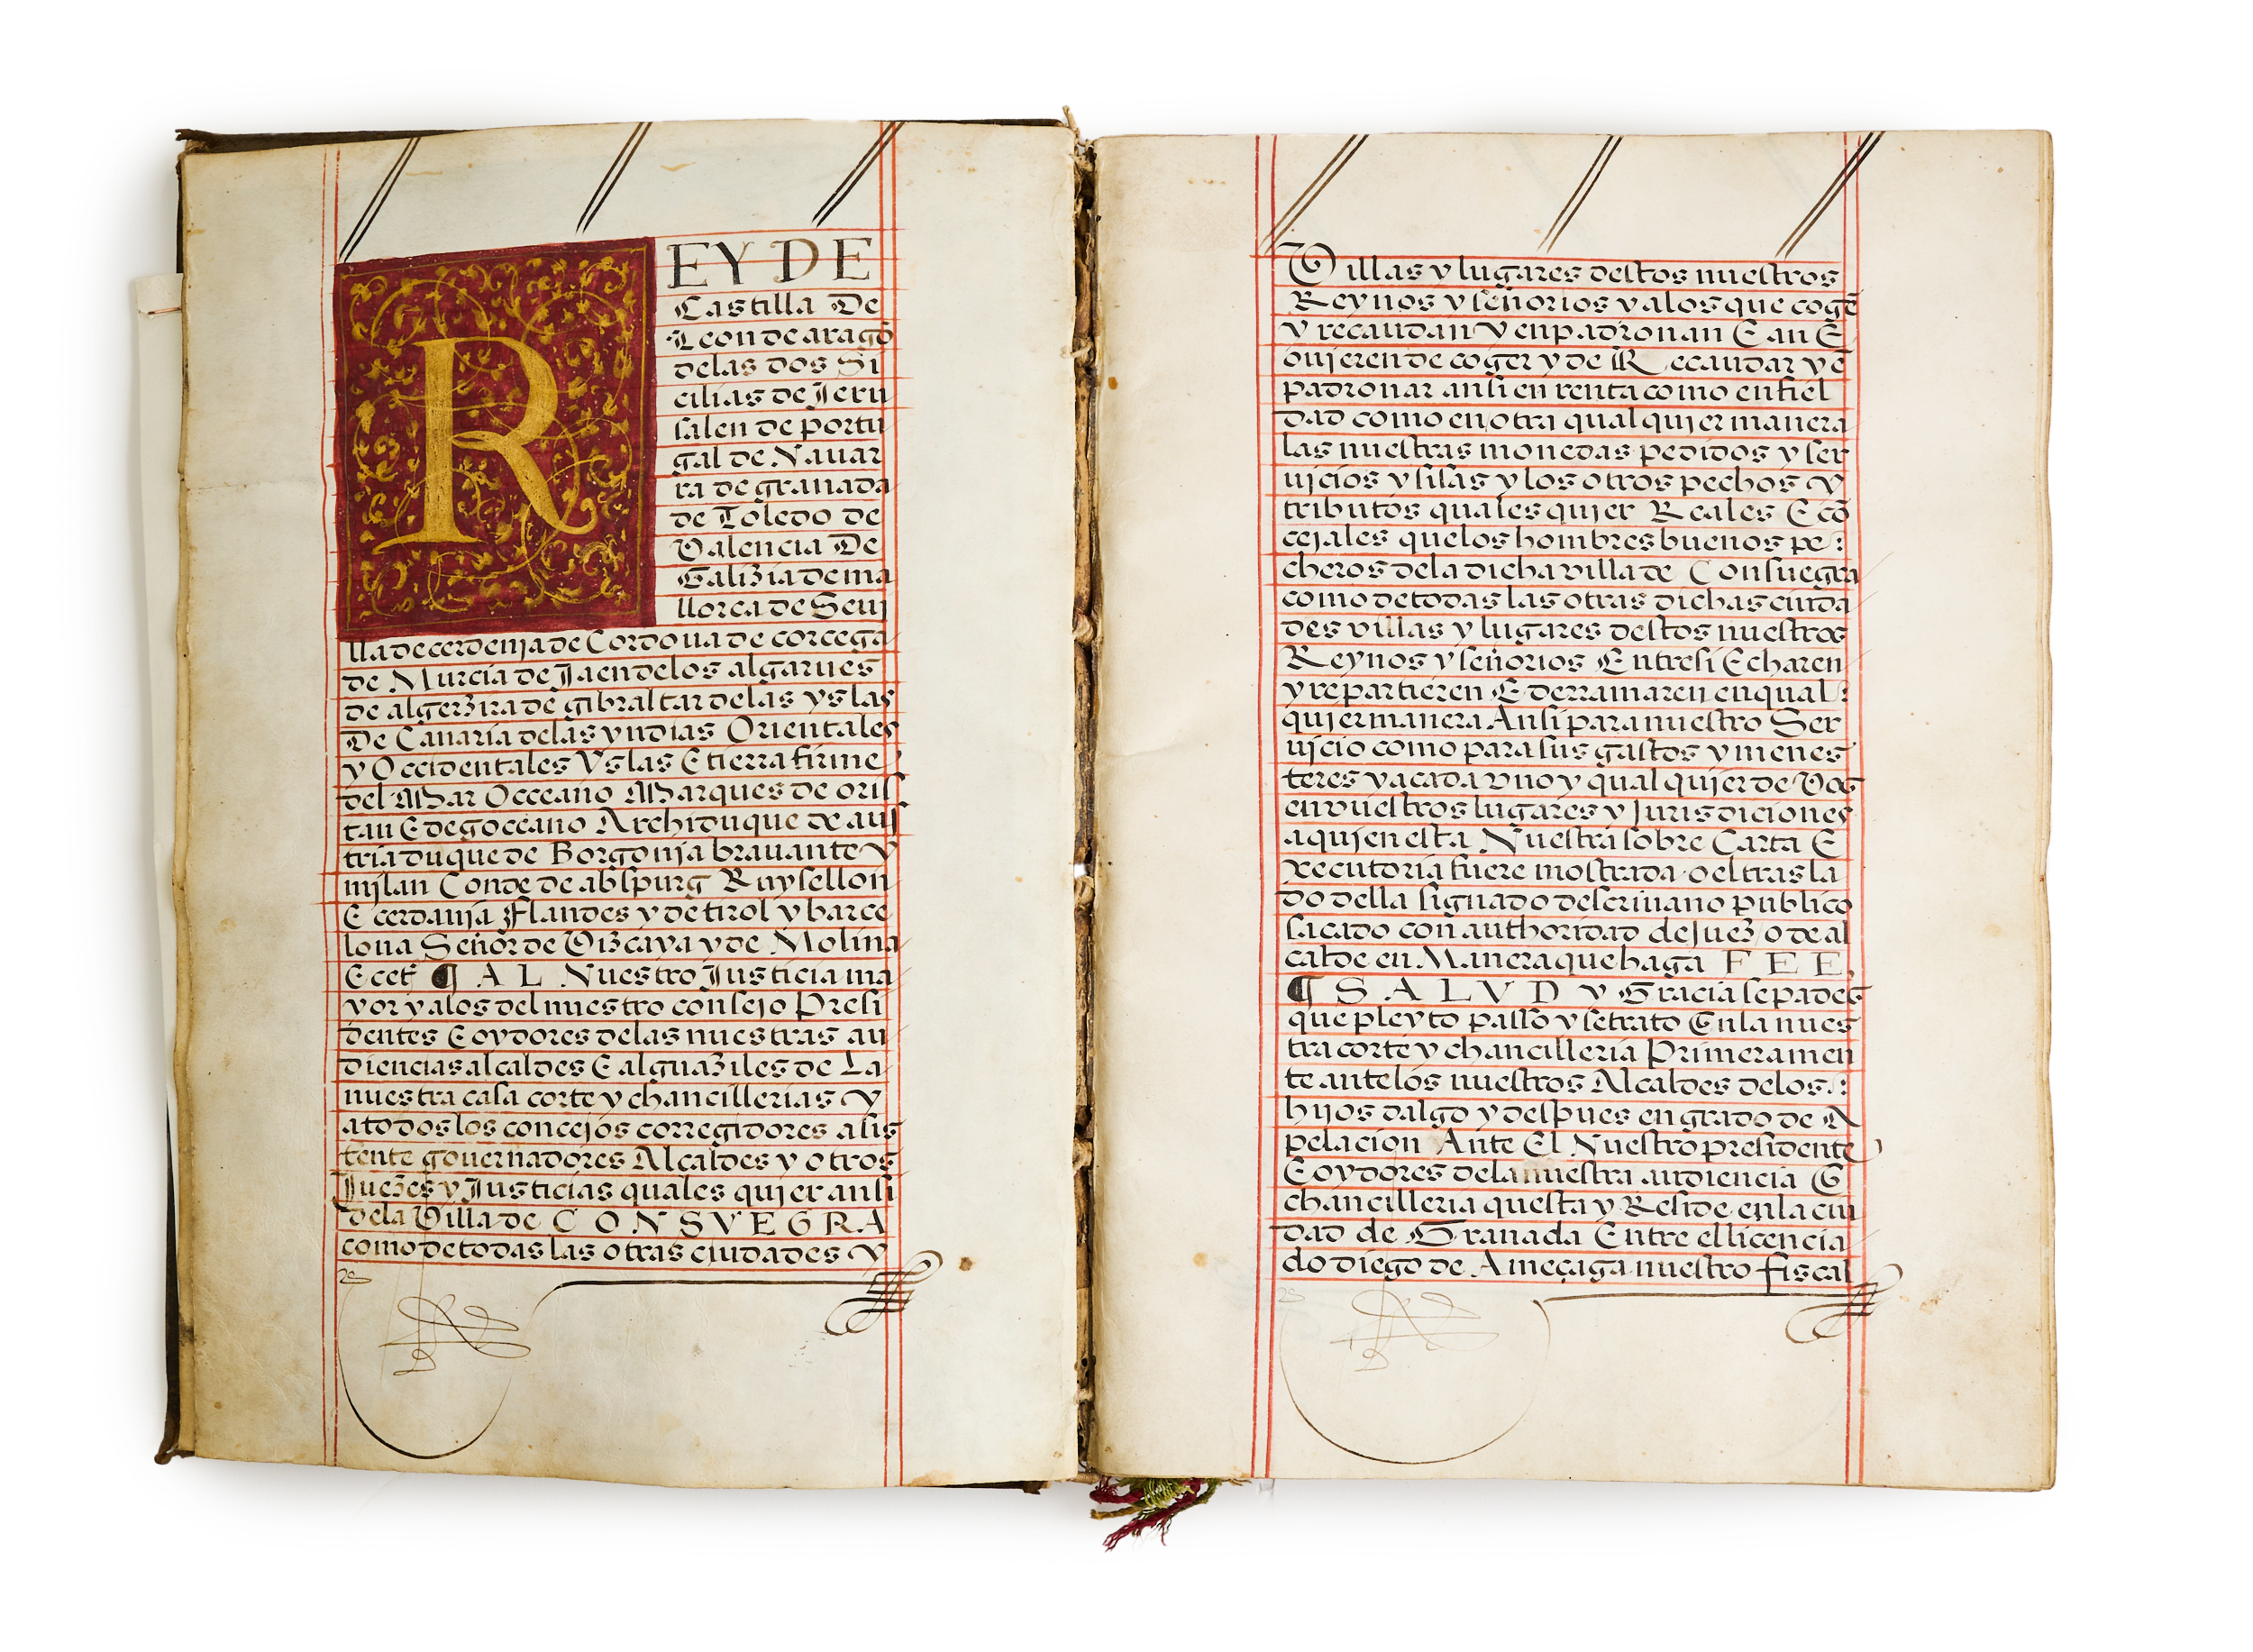 REY DE
Castilla De
Leon de aragō
delas dos Si
cilias de Jeru
salen de portu
gal de Nauar
ra de granada
de Toledo de
Valencia De
Galizia de ma
llorca de Seui
lla de cerdenja de Cordoua de corcega
de Murcia de Jaen delos algarues
de algezira de gibraltar delas yslas
De Canaria delas yndias Orientales
y Occidentales Yslas E tierra firme
del Mar Occeano Marques de oris
tan E de goceano Archiduque de aus
tria duque de Borgonja brauante y
mjlan Conde de abspurg Ruysellon
E cerdanja Flandes y de tirol y barce
lona Señor de Vizcaya y de Molina
E cet̄ ¶ AL Nuestro Justicia ma
yor y alos del nuestro consejo Presi
dentes E oydores delas nuestras au
diencias alcaldes E alguaziles de La
nuestra casa corte y chancillerias y
a todos los concejos corregidores asis
tente gouernadores Alcaldes y otros
Juezes y Justicias quales qujer ansi
dela Villa de CONSVEGRA
como de todas las otras ciudades y
Villas y lugares destos nuestros
Reynos y señorios y alos que cogē
y recaudan y enpadronan E an E
oujeren de coger y de Recaudar y ē
padronar ansi en renta como en fiel
dad como en otra qual qujer manera
las nuestras monedas pedidos y ser
uicios y sisas y los otros pechos y
tributos quales qujer Reales E cō
cejales que los hombres buenos pe:
cheros dela dicha villa de Consuegra
como de todas las otras dichas ciuda
des villas y lugares destos nuestros
Reynos y señorios Entre si E charen
y repartieren E derramaren en qual:
qujer manera Ansi para nuestro Ser
uicio como para sus gastos y menes
teres y a cada vno y qual qujer de Vos
en vuestros lugares y Jurisdiciones
a quien esta Nuestra sobre Carta E
xecutoria fuere mostrada o el trasla
do della signado de scriuano publico
sacado con authoridad de Juez o de al
calde en Manera que haga FEE,
¶ SALVD y Gracia sepades
que pleyto passo y se trato En la nues
tra corte y chancilleria Primeramen
te ante los nuestros Alcaldes delos:
hijos dalgo y despues en grado de A
pelacion Ante El Nuestro presidente
E oydores dela nuestra audiencia E
chancilleria questa y Reside en la ciu
dad de Granada Entre el licencia
do diego de Ameçaga nuestro fiscal